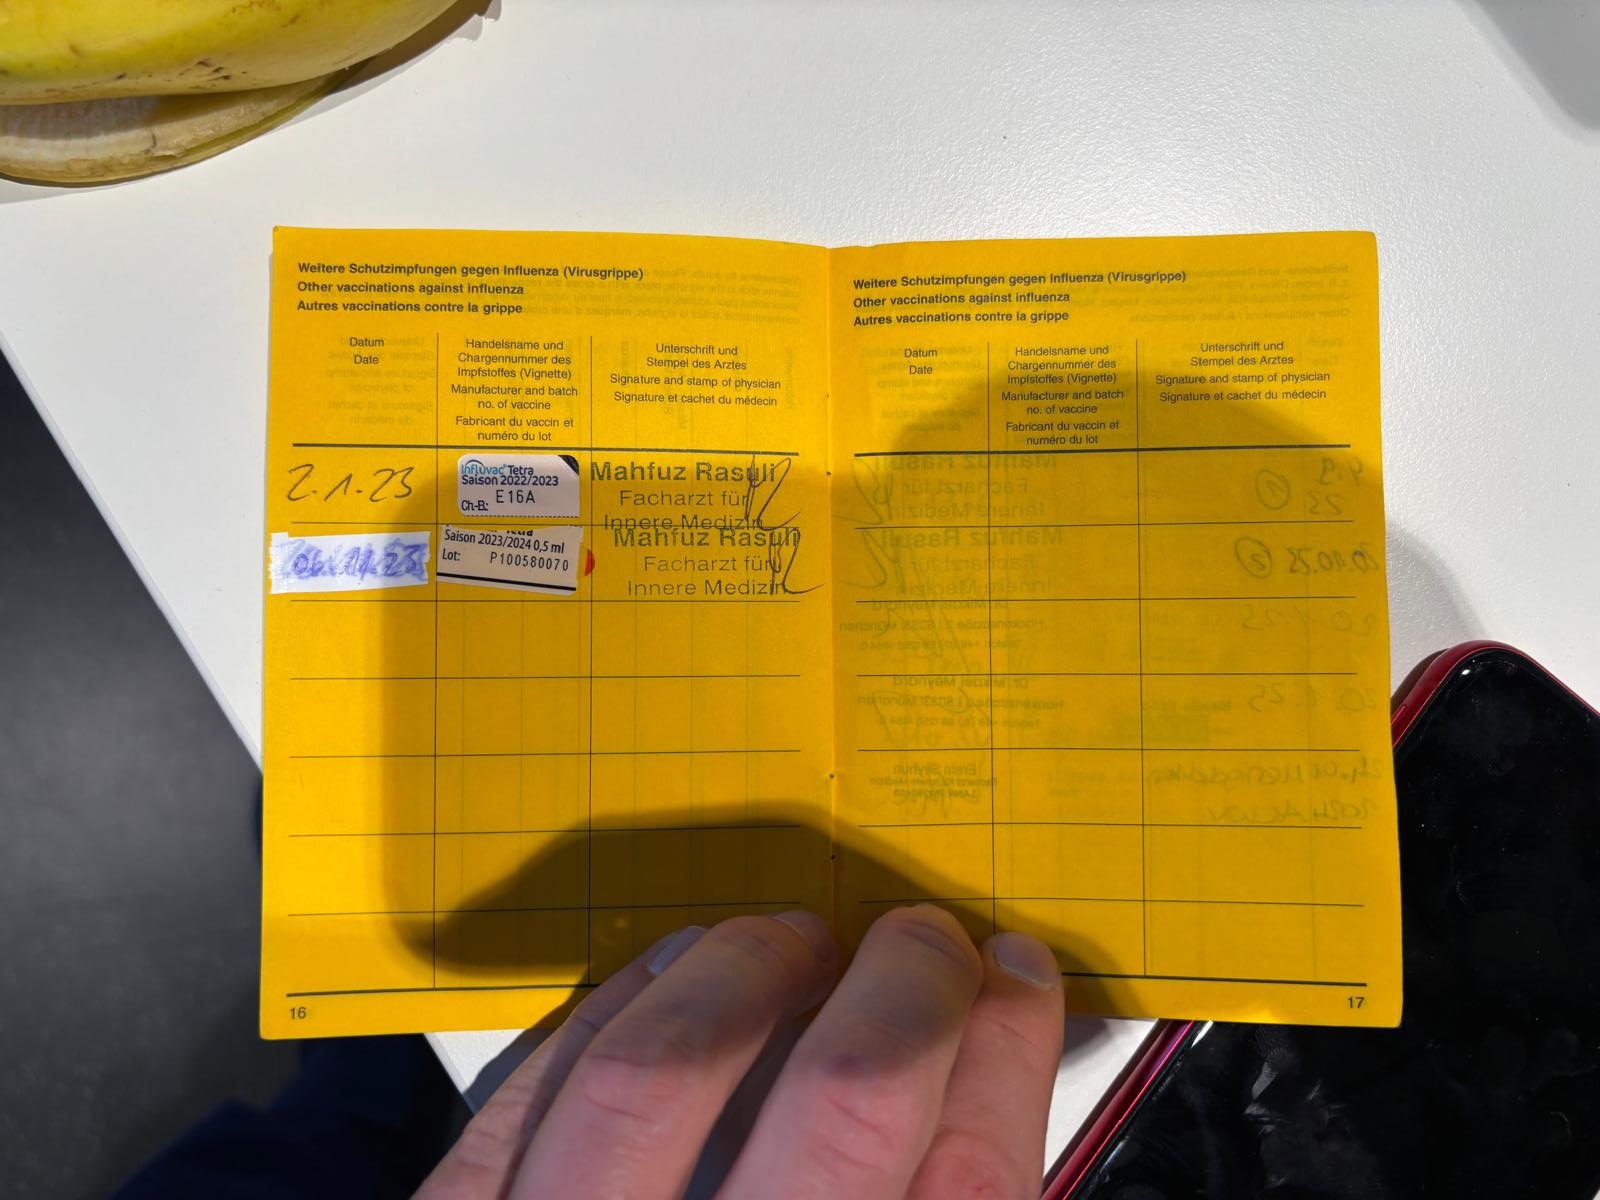 Weitere Schutzimpfungen gegen Influenza (Virusgrippe)
Other vaccinations against influenza
Autres vaccinations contre la grippe
Datum
Date
Handelsname und
Chargennummer des
Impfstoffes (Vignette)
Manufacturer and batch
no. of vaccine
Fabricant du vaccin et
numéro du lot
Unterschrift und
Stempel des Arztes
Signature and stamp of physician
Signature et cachet du médecin
2.1.23
Influvac Tetra
Saison 2022/2023
E16A
Ch-B.:
Mahfuz Rasuli
Facharzt für
Innere Medizin
06.11.23
Saison 2023/2024 0,5 ml
Lot: P100580070
Mahfuz Rasuli
Facharzt für
Innere Medizin
16
Weitere Schutzimpfungen gegen Influenza (Virusgrippe)
Other vaccinations against influenza
Autres vaccinations contre la grippe
Datum
Date
Handelsname und
Chargennummer des
Impfstoffes (Vignette)
Manufacturer and batch
no. of vaccine
Fabricant du vaccin et
numéro du lot
Unterschrift und
Stempel des Arztes
Signature and stamp of physician
Signature et cachet du médecin
17